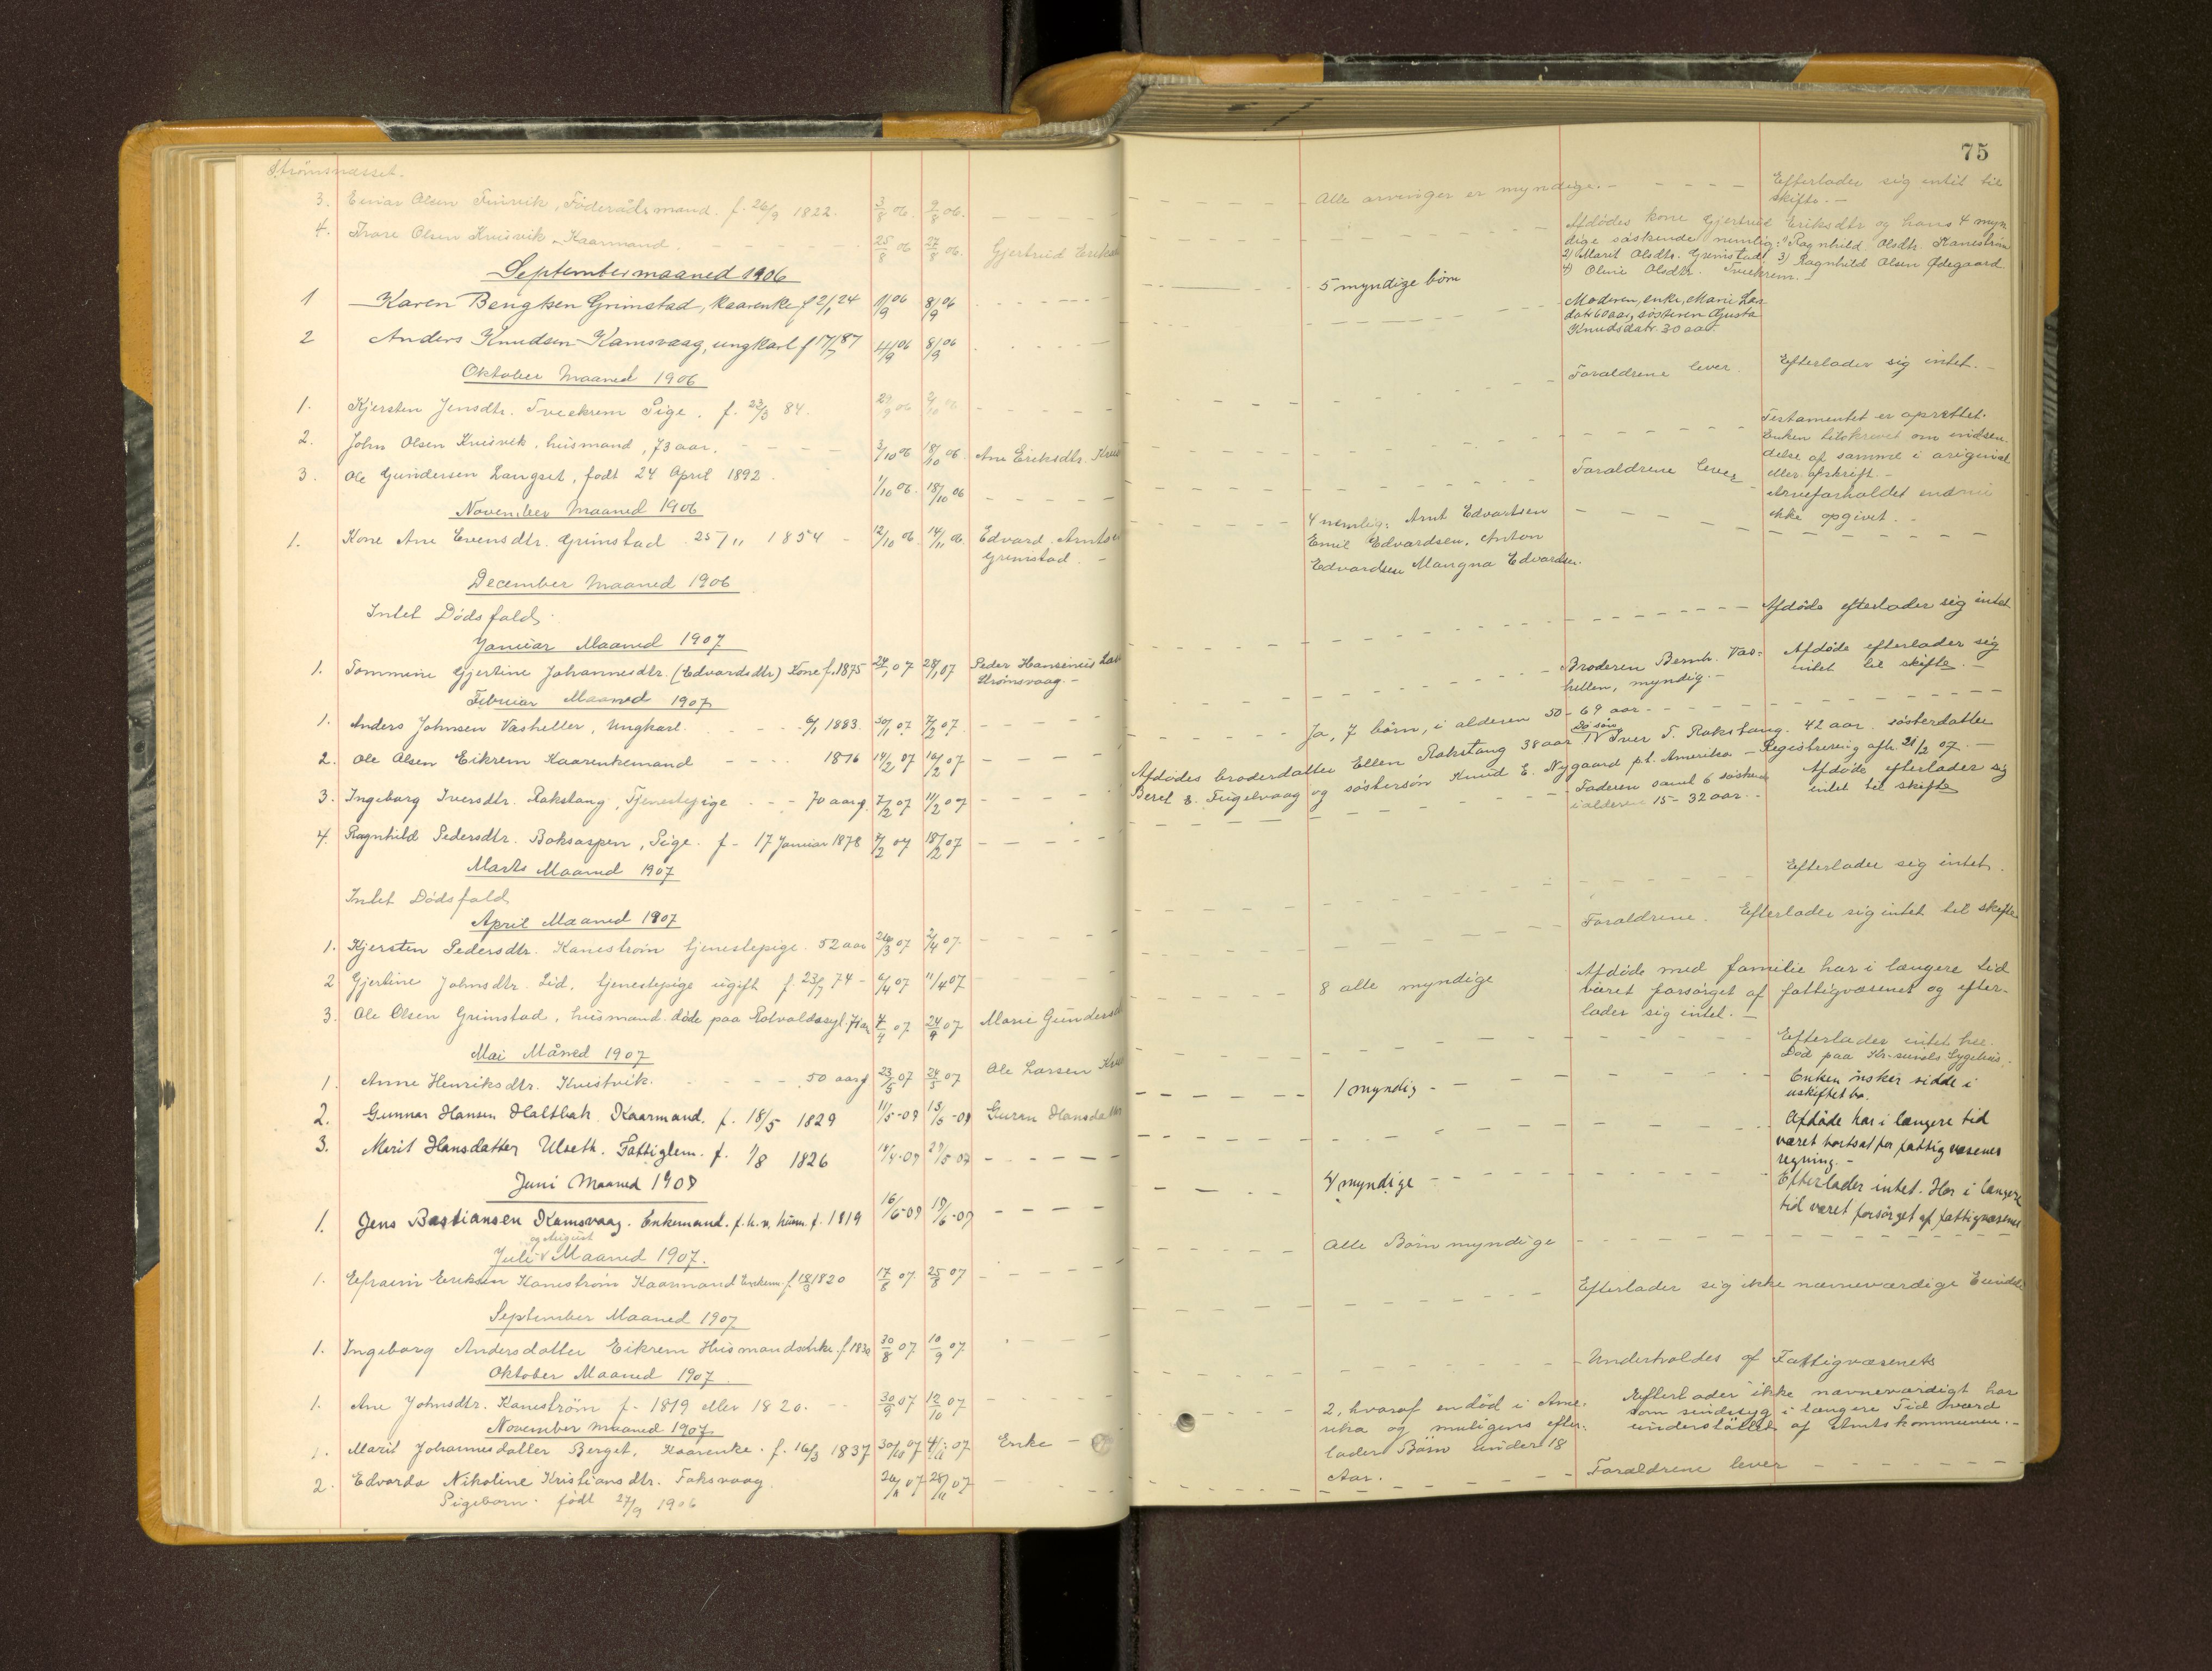 75
Strømsnæsset.
3. Einar Olsen Finvik, Föderådsmand. f. 26/9 1822. 3/8 06. 9/8 06. — — — —
4. Olsen Kvisvik Kaarmand. — — — 25/8 06 27/8 06. Gjertrud
Septembermaaned 1906
1 Karen Bengtsen Grimstad, kaarenke f 2/1 24 1/9 06 8/9 06
2 Anders Knudsen Kamsvaag, ungkarl f 17/7 87 4/9 06 8/9 06
Oktober Maaned 1906
1. Kjersten Jensdtr. Tveekrem Pige. f. 23/3 84. 28/9 06 2/10 06
2. John Olsen Kvisvik, husmand, 73 aar. 3/10 06 18/10 06. Ane Eriksdtr.
3. Ole Gundersen Langset, født 24 April 1892. 1/10 06. 18/10 06
November Maaned 1906
1. Kone Ane Evensdtr. Grimstad 25/11 1854 — 12/10 06 14/11 06. Edvard
Grimstad. —
December Maaned 1906
Intet Dødsfald
Januar Maaned 1907
1. Tommine Gjertine Johannesdtr. (Edvardsdtr) Kone f. 1875 24/1 07 28/1 07 Peder Hansinius
Strømsvaag. —
Februar Maaned 1907
1. Anders Johnsen Vasheller, Ungkarl. 6/1 1883. 30/1 07. 7/2 07.
2. Ole Olsen Eikrem Kaarenkemand — — — 1816 14/2 07 16/2 07
3. Ingeborg Iversdtr. Rakstang, Tjenestepige — — 70 aar g. 7/2 07 11/2 07
4. Ragnhild Pedersdtr. Boksaspen, Pige. f — 17 Januar 1878 7/2 07 18/2 07
Marts Maaned 1907
Intet Dødsfald
April Maaned 1907
1. Kjersten Pedersdtr. Kanestrøm tjenestepige. 52 aar 26/3 07 2/4 07.
2 Gjertine Johnsdtr. Lid, tjenestepige ugift f. 23/7 74 — 6/4 07 11/4 07
3. Ole Olsen Grimstad, husmand døde paa 4/4 07 24/9 07 Marie
Mai Måned 1907
1. Anne Henriksdtr. Kvistvik. 50 aar g 23/5 07 24/5 07 Ole Larsen
2. Gunnar Hansen Haltbak Kaarmand. f. 18/5 1829 11/5-07 Guren
3. Marit Hansdatter Ulseth. Fattiglem. f. 1/8 1826
Juni Maaned 1907
1. Jens Bastiansen Kamsvaag. Enkemand. f. h. v. husm. f. 1819 16/6-07 19/6-07
og August
Juli v Maaned 1907.
1. Efraim Eriksen Kanestrøm Kaarmand Enkem. f. 18/3 1820 17/8 07. 25/8 07
September Maaned 1907
1. Ingeborg Andersdatter Eikrem Husmandsenke. 30/8 07 10/9 07
Oktober Maaned 1907
1. Ane Johnsdtr. Kaneström f — 1819 eller 1820. 30/9 07 12/10 07
November Maaned 1907.
1. Marit Johannesdatter Berget, Kaarenke. f. 16/3 1837 30/10 07 07 Enke —
2. Edvarda Nikoline Kristiansdtr. Foksvaag. 26/11 07 28/11 07
Pigebarn. født 27/9 1906
Alle arvinger er myndige. — — — — — Efterlader sig intet til
skifte. —
Afdødes kone Gjertrud Eriksdtr og hans 4 myn
dige söskende nemlig: 1) Ragnhild Olsdtr. Kaneström
2) Marit Olsdtr. Grimstad 3) Ragnhild Olsen Ødegaard
4) Olsdtr. Tveekrem. —
5 myndige börn
Moderen, enke, Marie
datr 60 aar, søsteren Gjusta
Knudsdatr. 30 aar.
Forældrene lever. Efterlader sig intet. —
Testamentet er oprettet.
Enken tilskrevet om indsen-
delse af samme i original
eller afskrift. —
Forældrene lever
Arveforholdet endnu
ikke opgivet. —
4 nemlig: Arnt Edvardsen
Emil Edvardsen, Anton
Edvardsen Mangna Edvardsen.
Afdöde efterlader sig intet
Broderen Bernh. Vas= Afdöde efterlader sig
hellen, myndig. — intet til skifte. —
Ja, 7 börn, i alderen 50 — 69 aar —
Afdödes broderdatter Ellen Rakstang 38 aar Iver T. Rakstang. 42 aar. søsterdatter
Beret E. Fugelvaag og søstersön Knud E. Nygaard pt. Amerika — Registrering afh. 21/2 07. —
Faderen samt 6 söskende Afdöde efterlader sig
i alderen 15 — 32 aar. — intet til skifte
Efterlader sig intet.
Forældrene. Efterlader sig intet til skifte
8 alle myndige
Afdöde med familie har i længere tid
været forsörget af fattigvæsenet og efter-
lader sig intet. —
Efterlader intet her.
Död paa Kr.sunds Sygehus.
1 myndig —
Enken önsker sidde i
uskiftet bo.
Afdöde har i længere tid
været bortsat for fattigvæsenets
regning. —
4 myndige
Efterlader intet. Har i længere
tid været forsörget af fattigvæsenet
Alle Börn myndige
Efterlader sig ikke nævneværdige
Underholdes af Fattigvæsenets
2, hvoraf en död i Ame-
rika og muligens efter-
lader Börn under 18
Aar.
Efterlader ikke nævneværdigt har
som sindssyg i længere Tid værd
understöttet af Amtskommunen. —
Forældrene lever